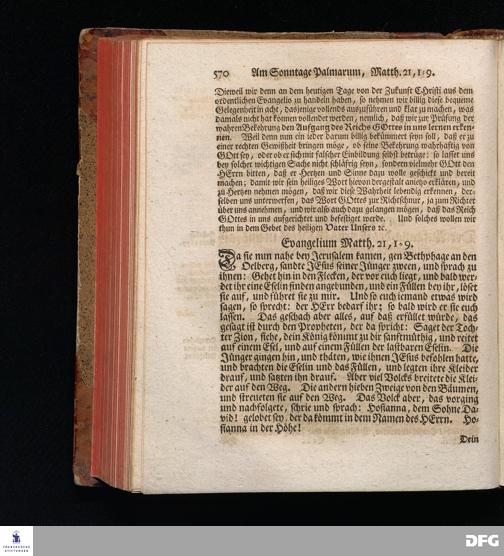 570 Am Sonntage Palmarum, Matth. 21, 1-9.
Dieweil wir denn an dem heutigen Tage von der Zukunft CHristi aus dem
ordentlichen Evangelio zu handeln haben, so nehmen wir billig diese bequeme
Gelegenheit in acht, dasjenige vollends auszuführen und klar zu machen, was
damals nicht hat können vollendet werden, nemlich, daß wir zur Prüfung der
wahren Bekehrung den Aufgang des Reichs GOttes in uns lernen erken-
nen. Weil denn nun ein ieder darum billig bekümmert seyn soll, daß er zu
einer rechten Gewißheit bringen möge, ob seine Bekehrung wahrhaftig von
GOtt sey, oder ob er sich mit falscher Einbildung selbst betrüge: so lasset uns
bey solcher wichtigen Sache nicht schläfrig seyn, sondern vielmehr GOtt den
HErrn bitten, daß er Hertzen und Sinne dazu wolle geschickt und bereit
machen; damit wir sein heiliges Wort hievon dergestalt anietzo erklären, und
zu Hertzen nehmen mögen, daß wir diese Wahrheit lebendig erkennen, der-
selben uns unterwerfen, das Wort GOttes zur Richtschnur, ja zum Richter
über uns annehmen, und wir also auch dazu gelangen mögen, daß das Reich
GOttes in uns aufgerichtet und befestiget werde. Und solches wollen wir
thun in dem Gebet des heiligen Vater Unsers ꝛc.
Evangelium Matth. 21, 1-9.
Da sie nun nahe bey Jerusalem kamen, gen Bethphage an den
Oelberg, sandte JEsus seiner Jünger zween, und sprach zu
ihnen: Gehet hin in den Flecken, der vor euch liegt, und bald wer-
det ihr eine Eselin finden angebunden, und ein Füllen bey ihr, löset
sie auf, und führet sie zu mir. Und so euch iemand etwas wird
sagen, so sprecht: der HErr bedarf ihr; so bald wird er sie euch
lassen. Das geschach aber alles, auf daß erfüllet würde, das
gesagt ist durch den Propheten, der da spricht: Saget der Toch-
ter Zion, siehe, dein König kömmt zu dir sanftmüthig, und reitet
auf einem Esel, und auf einem Füllen der lastbaren Eselin. Die
Jünger gingen hin, und thäten, wie ihnen JEsus befohlen hatte,
und brachten die Eselin und das Füllen, und legten ihre Kleider
drauf, und setzten ihn drauf. Aber viel Volcks breitete die Klei-
der auf den Weg. Die andern hieben Zweige von den Bäumen,
und streueten sie auf den Weg. Das Volck aber, das vorging
und nachfolgete, schrie und sprach: Hosianna, dem Sohne Da-
vid! gelobet sey, der da kömmt in dem Namen des HErrn. Ho-
sianna in der Höhe!
Dein
FRANCKESCHE
STIFTUNGEN
DFG